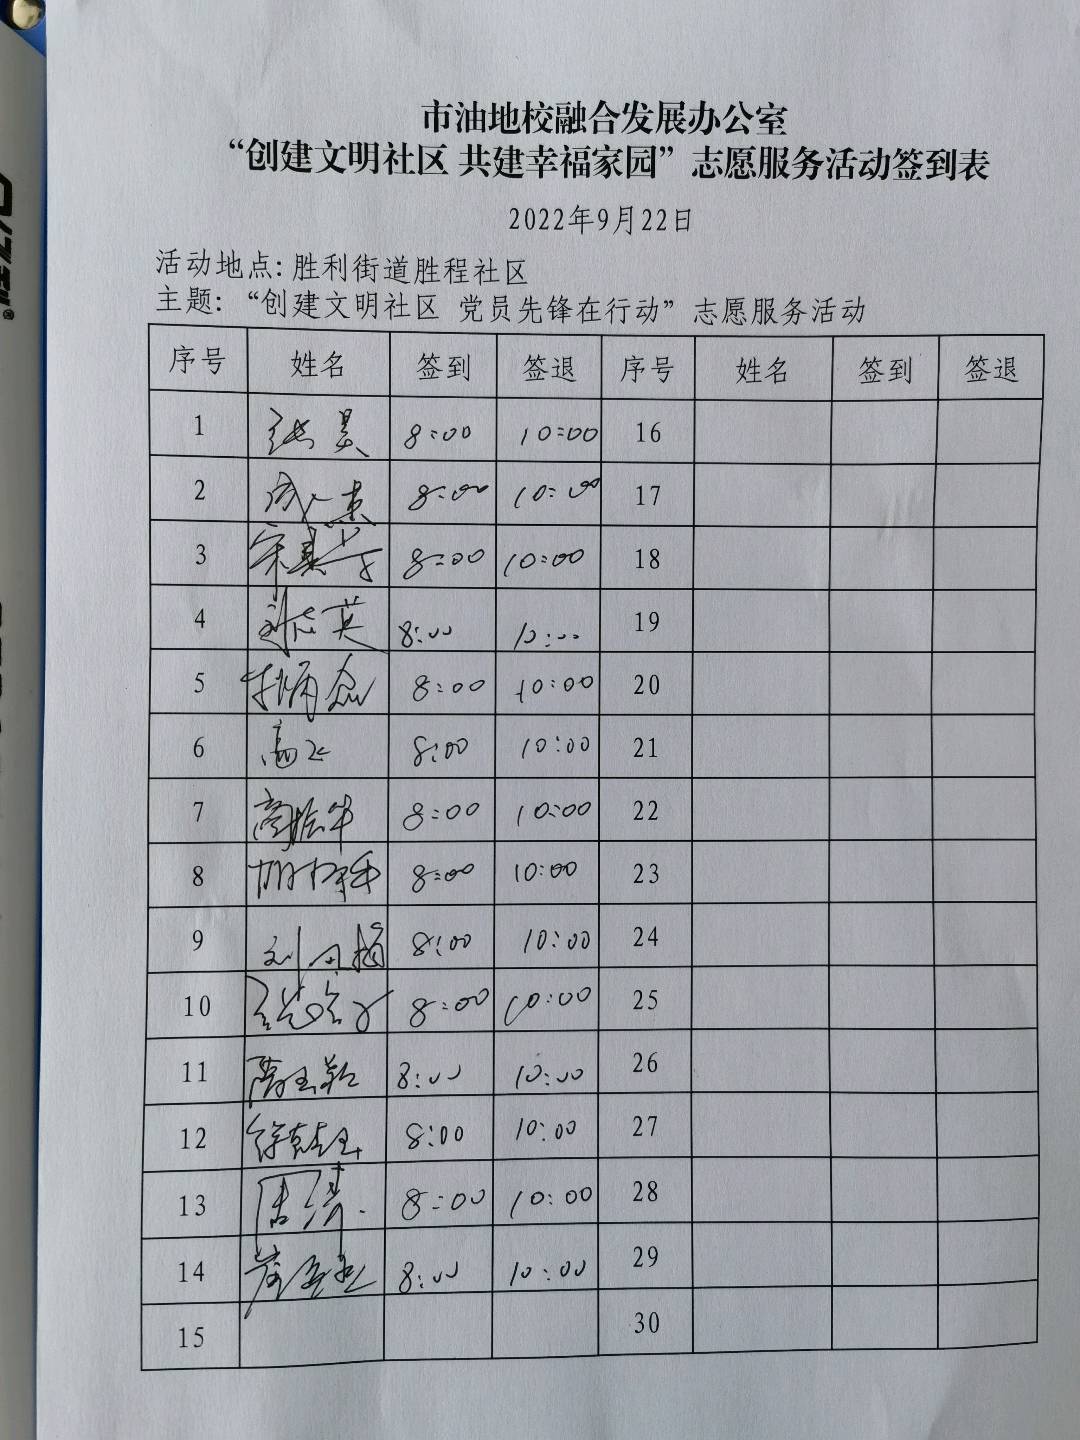 市油地校融合发展办公室
“创建文明社区 共建幸福家园”志愿服务活动签到表
2022年9月22日
活动地点：胜利街道胜程社区
主题：“创建文明社区 党员先锋在行动”志愿服务活动
序号 姓名 签到 签退 序号 姓名 签到 签退
1 张昊 8:00 10:00 16
2 8:00 10:00 17
3 8:00 10:00 18
4 刘志英 8:00 10:00 19
5 8:00 10:00 20
6 高飞 8:00 10:00 21
7 商振华 8:00 10:00 22
8 8:00 10:00 23
9 8:00 10:00 24
10 8:00 10:00 25
11 8:00 10:00 26
12 8:00 10:00 27
13 8:00 10:00 28
14 8:00 10:00 29
15 30